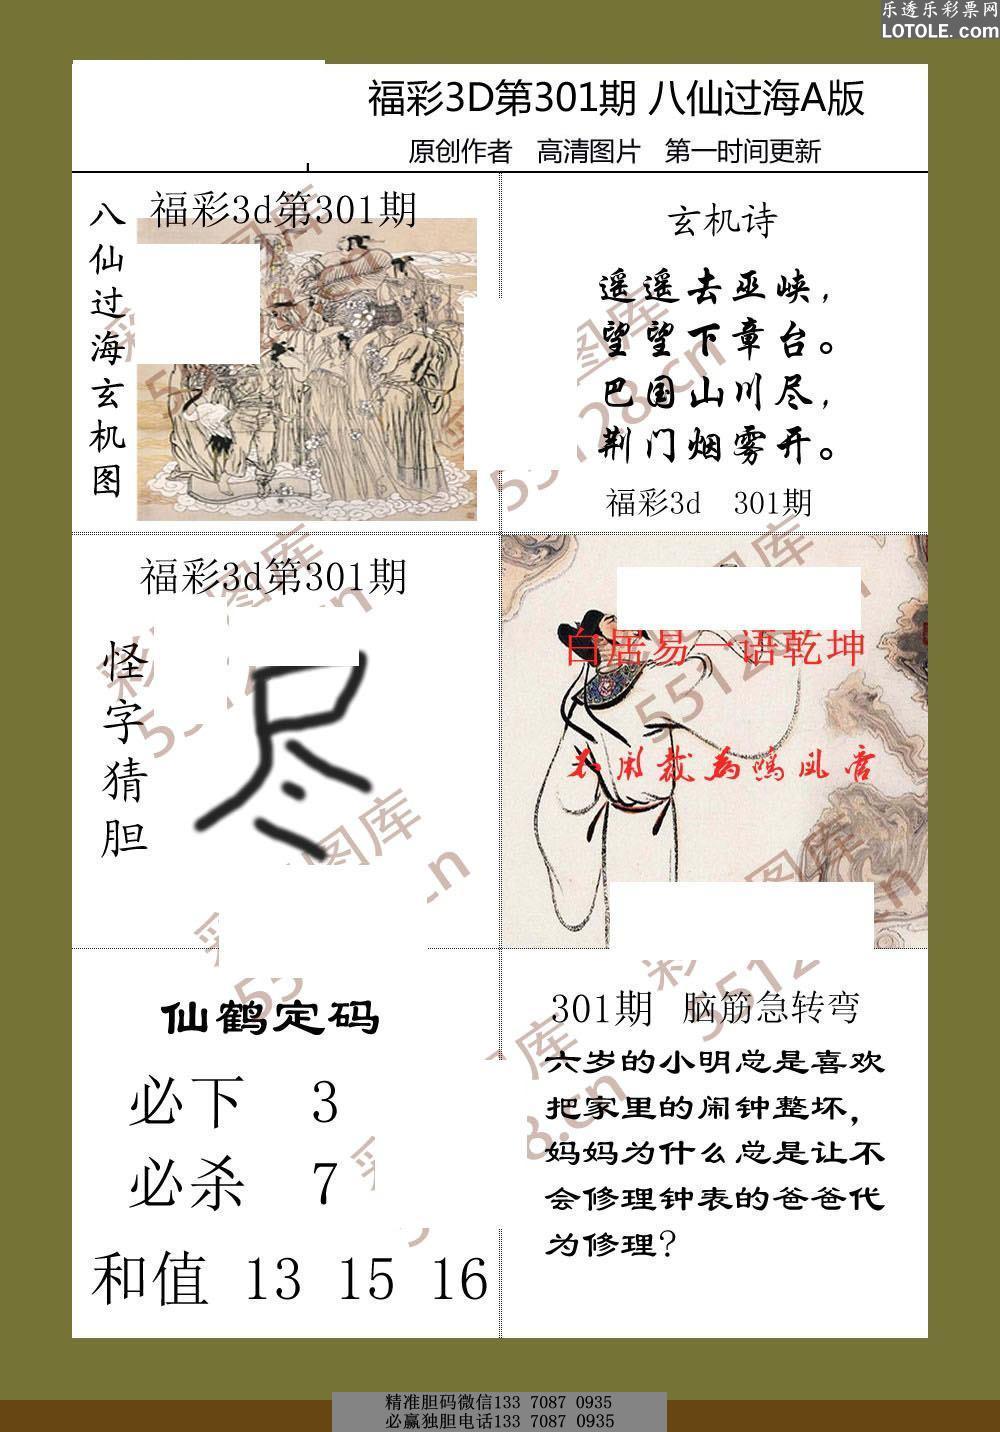 乐透乐彩票网
LOTOLE.com
福彩3D第301期 八仙过海A版
原创作者 高清图片 第一时间更新
福彩3d第301期
八仙过海玄机图
玄机诗
遥遥去巫峡，
望望下章台。
巴国山川尽，
荆门烟雾开。
福彩3d 301期
福彩3d第301期
怪字猜胆
尽
白居易一语乾坤
不用裁为鸣凤管
仙鹤定码
必下 3
必杀 7
和值 13 15 16
301期 脑筋急转弯
六岁的小明总是喜欢
把家里的闹钟整坏，
妈妈为什么总是让不
会修理钟表的爸爸代
为修理？
精准胆码微信133 7087 0935
必赢独胆电话133 7087 0935